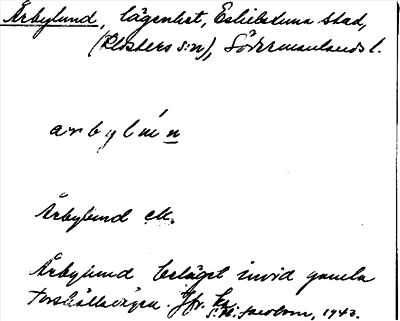 Årbylund, lägenhet, Eskilstuna stad,
(Klosters s:n), Södermanlands l.
Årbylund ek.
Årbylund beläget invid gamla
Torshällavägen. Jfr.
S. H. Jacobson, 1943.